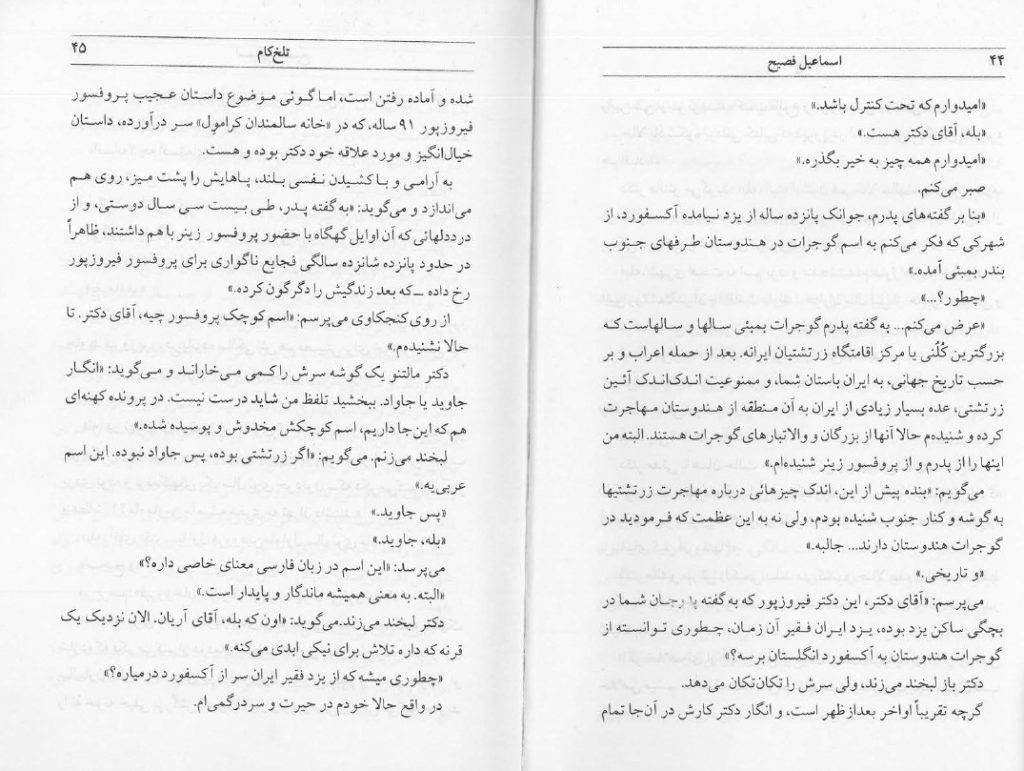 ۴۴
اسماعیل فصیح
«امیدوارم که تحت کنترل باشد.»
«بله، آقای دکتر هست.»
«امیدوارم همه چیز به خیر بگذره.»
صبر می‌کنم.
«بنا بر گفته‌های پدرم، جوانک پانزده ساله از یزد نیامده آکسفورد، از
شهرکی که فکر می‌کنم به اسم گوجرات در هندوستان طرفهای جنوب
بندر بمبئی آمده.»
«چطور؟...»
«عرض می‌کنم... به گفته پدرم گوجرات بمبئی سالها و سالهاست که
بزرگترین کُلُنی یا مرکز اقامتگاه زرتشتیان ایرانه. بعد از حمله اعراب و بر
حسب تاریخ جهانی، به ایران باستان شما، و ممنوعیت اندک‌اندک آئین
زرتشتی، عده بسیار زیادی از ایران به آن منطقه از هندوستان مهاجرت
کرده و شنیده‌م حالا آنها از بزرگان و والاتبارهای گوجرات هستند. البته من
اینها را از پدرم و از پروفسور زینر شنیده‌ام.»
می‌گویم: «بنده پیش از این، اندک چیزهائی درباره مهاجرت زرتشتیها
به گوشه و کنار جنوب شنیده بودم، ولی نه به این عظمت که فرمودید در
گوجرات هندوستان دارند... جالبه.»
«و تاریخی.»
می‌پرسم: «آقای دکتر، این دکتر فیروزپور که به گفته پدرجان شما در
بچگی ساکن یزد بوده، یزد ایران فقیر آن زمان، چطوری توانسته از
گوجرات هندوستان به آکسفورد انگلستان برسه؟»
دکتر باز لبخند می‌زند، ولی سرش را تکان‌تکان می‌دهد.
گرچه تقریباً اواخر بعدازظهر است، و انگار دکتر کارش در آن‌جا تمام
تلخ‌کام
۴۵
شده و آماده رفتن است، اما گوئی موضوع داستان عجیب پروفسور
فیروزپور ۹۱ ساله، که در «خانه سالمندان کرامول» سر درآورده، داستان
خیال‌انگیز و مورد علاقه خود دکتر بوده و هست.
به آرامی و با کشیدن نفسی بلند، پاهایش را پشت میز، روی هم
می‌اندازد و می‌گوید: «به گفته پدر، طی بیست سی سال دوستی، و از
درددلهائی که آن اوایل گهگاه با حضور پروفسور زینر با هم داشتند، ظاهراً
در حدود پانزده شانزده سالگی فجایع ناگواری برای پروفسور فیروزپور
رخ داده ــ که بعد زندگیش را دگرگون کرده.»
از روی کنجکاوی می‌پرسم: «اسم کوچک پروفسور چیه، آقای دکتر. تا
حالا نشنیده‌م.»
دکتر مالتنو یک گوشه سرش را کمی می‌خاراند و می‌گوید: «انگار
جاوید یا جاواد. ببخشید تلفظ من شاید درست نیست. در پرونده کهنه‌ای
هم که این‌جا داریم، اسم کوچکش مخدوش و پوسیده شده.»
لبخند می‌زنم. می‌گویم: «اگر زرتشتی بوده، پس جاواد نبوده. این اسم
عربی‌یه.»
«پس جاوید.»
«بله، جاوید.»
می‌پرسد: «این اسم در زبان فارسی معنای خاصی داره؟»
«البته. به معنی همیشه ماندگار و پایدار است.»
دکتر لبخند می‌زند.می‌گوید: «اون که بله، آقای آریان. الان نزدیک یک
قرنه که داره تلاش برای نیکی ابدی می‌کنه.»
«چطوری میشه که از یزد فقیر ایران سر از آکسفورد درمیاره؟»
در واقع حالا خودم در حیرت و سردرگمی‌ام.